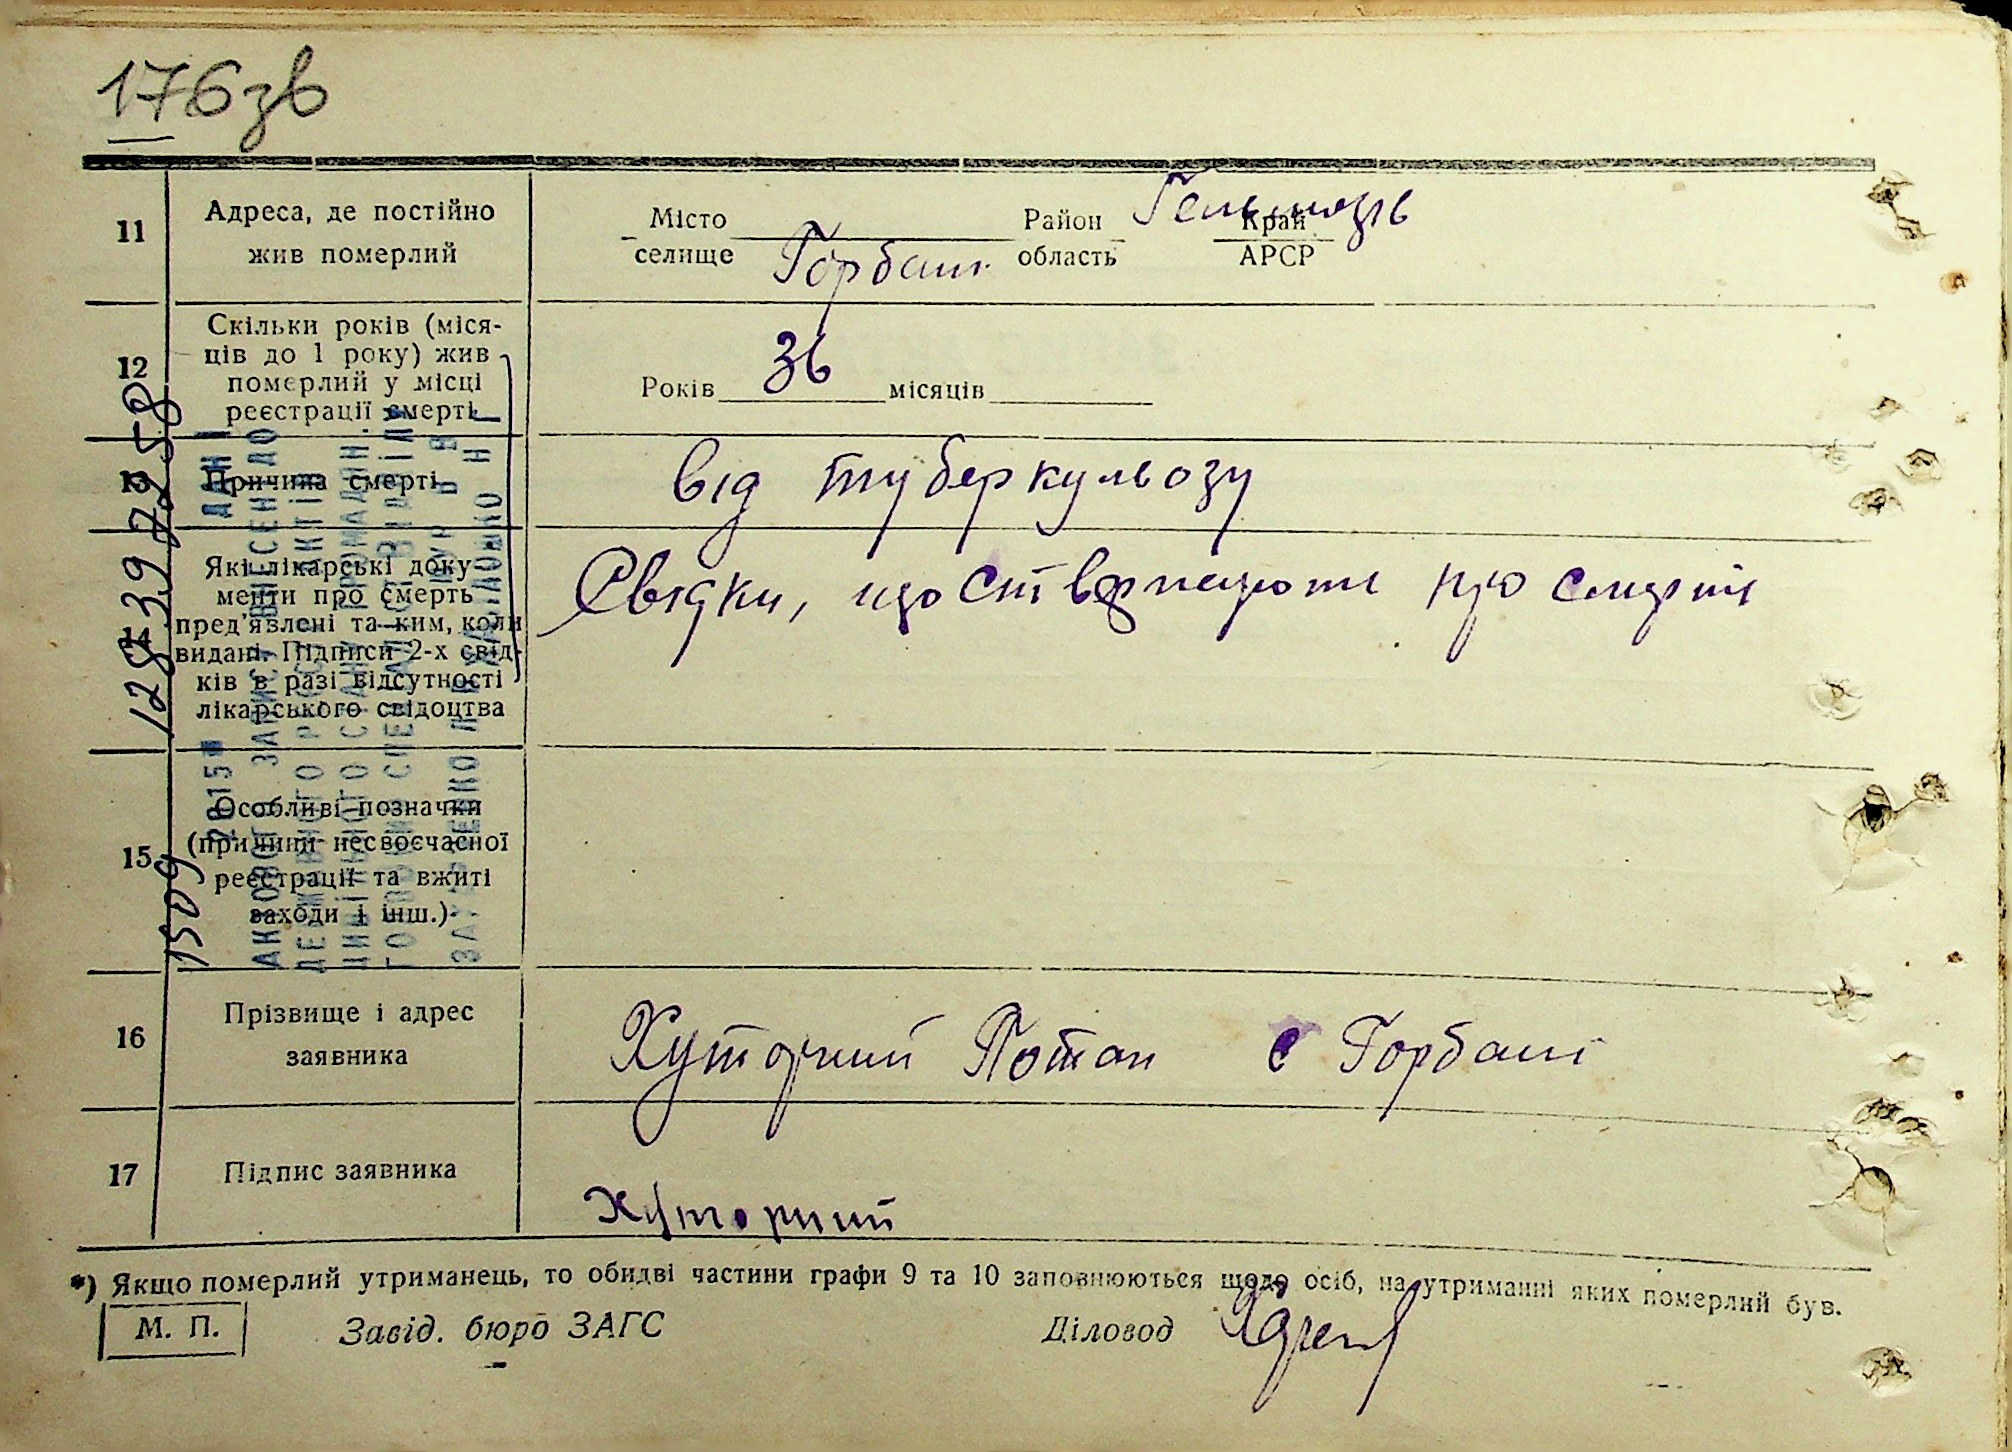 176зв
11
Адреса, де постійно
жив померлий
Місто
селище Горбані
Район
область
Гельмязь
Край
АРСР
12
Скільки років (міся-
ців до 1 року) жив
померлий у місці
реєстрації смерті
Років 36 місяців
13
Причина смерті
від туберкульозу
14
Які лікарські доку-
менти про смерть
пред'явлені та ким, коли
видані. Підписи 2-х свід-
ків в разі відсутності
лікарського свідоцтва
Свідки, що стверджують про смерть
15
Особливі позначки
(причини несвоєчасної
реєстрації та вжиті
заходи і інш.)
16
Прізвище і адрес
заявника
Хуторний Потап с Горбані
17
Підпис заявника
Хуторний
*) Якщо померлий утриманець, то обидві частини графи 9 та 10 заповнюються щодо осіб, на утриманні яких померлий був.
М. П.
Завід. бюро ЗАГС
Діловод